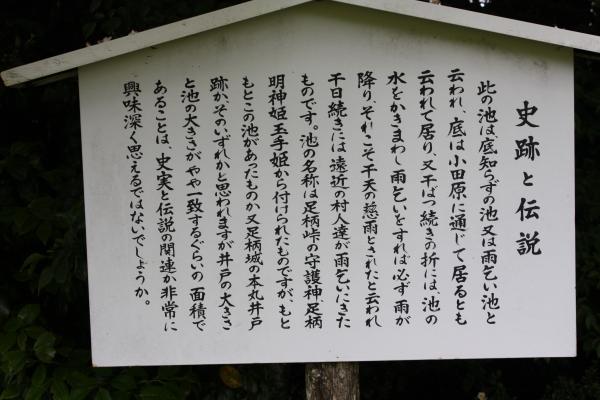 史跡と伝説
此の池は、底知らずの池又は雨乞い池と
云われ、底は小田原に通じて居るとも
云われて居り、又干ばつ続きの折には、池の
水をかきまわし雨乞いをすれば必ず雨が
降り、それこそ干天の慈雨とされたと云われ
干日続きには遠近の村人達が雨乞いにきた
ものです。池の名称は足柄峠の守護神、足柄
明神姫玉手姫から付けられたものですが、もと
もとこの池があったものか又足柄城の本丸井戸
跡か、そのいずれかと思われますが井戸の大きさ
と池の大きさがやや一致するぐらいの面積で
あることは、史実と伝説の関連が非常に
興味深く思えるではないでしょうか。